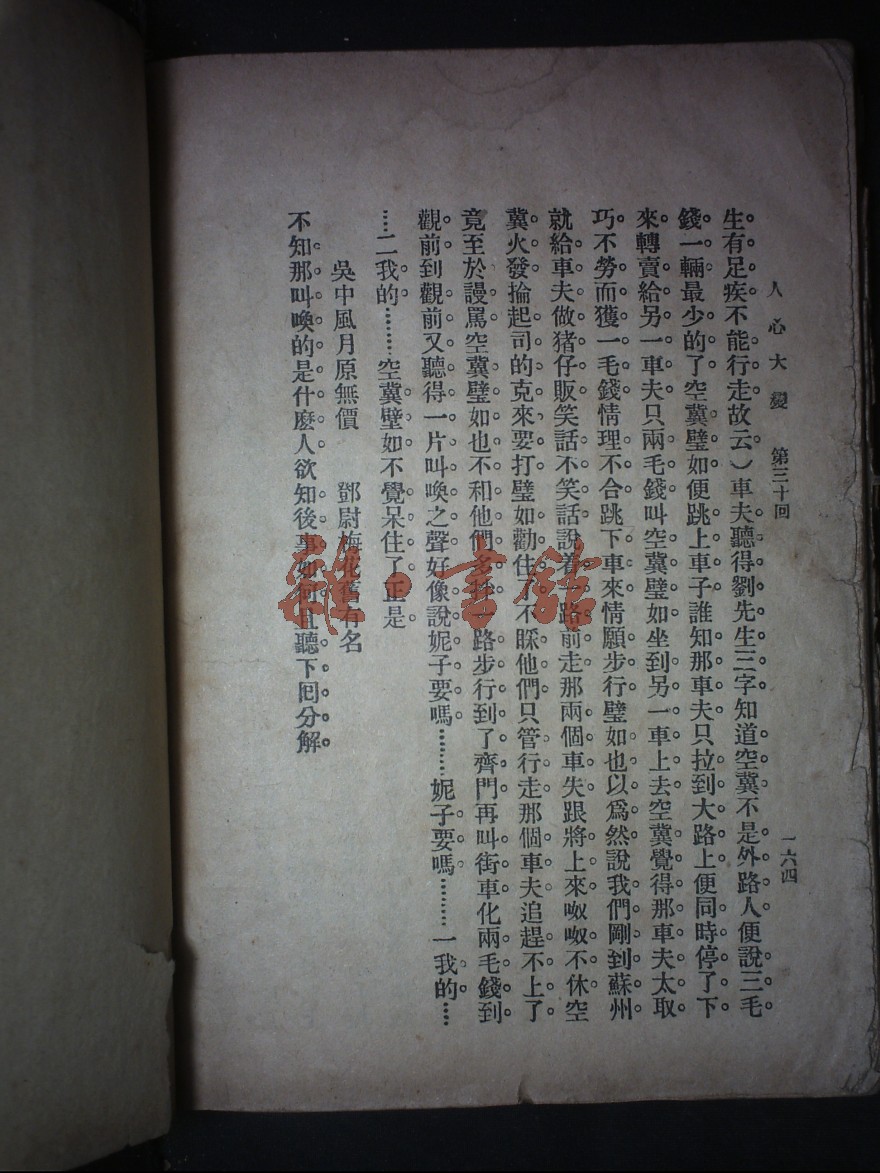 人心大變　第三十回　一六四
生有足疾不能行走故云）車夫聽得劉先生三字知道空冀不是外路人便說三毛
錢一輛最少的了空冀璧如便跳上車子誰知那車夫只拉到大路上便同時停了下
來轉賣給另一車夫只兩毛錢叫空冀璧如坐到另一車上去空冀覺得那車夫太取
巧不勞而獲一毛錢情理不合跳下車來情願步行璧如也以爲然說我們剛到蘇州
就給車夫做猪仔販笑話不笑話說着一路前走那兩個車失跟將上來呶呶不休空
冀火發掄起司的克來要打璧如勸住了不睬他們只管行走那個車夫追趕不上了
竟至於謾罵空冀璧如也不和他們多計一路步行到了齊門再叫街車化兩毛錢到
觀前到觀前又聽得一片叫喚之聲好像說妮子要嗎………妮子要嗎………一我的…
…二我的………空冀壁如不覺呆住了正是
吳中風月原無價　鄧尉梅花舊有名
不知那叫喚的是什麽人欲知後事如何且聽下囘分解
雜·書館